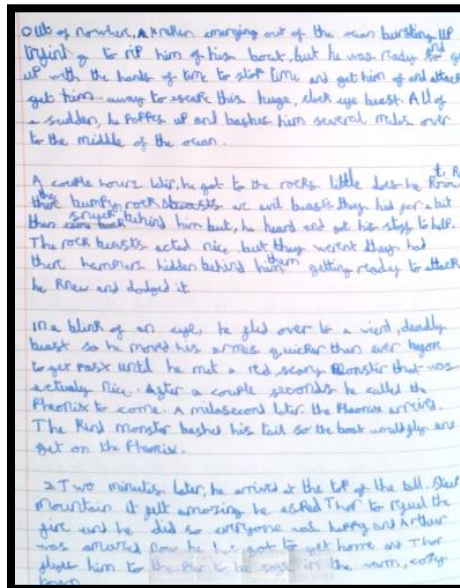 Out of nowhere, A kraken emerging out of the ocean bursting up
trying to rip him of his boat, but he was ready and so get
up with the hands of time to stop time and get him of and attack
get him away to escape this huge, clock eye beast. All of
a sudden, he poppes up and bashes him several miles over
to the middle of the ocean.
A couple hours later, he got to the rocks little does he know
the bumpy, rock beasts are evil beasts they hid for a bit
then snuck behind him but, he heard and got his stuff to help.
The rock beasts acted nice but they werent they had
there hammers hidden behind them getting ready to attack
he knew and dodged it.
In a blink of an eye, he fled over to a vierd, deadly
beast so he moved his armes quicker than ever before
to get past until he met a red scary monster that was
actually nice. After a couple seconds he called the
Pheonix to come. A milasecond later the Pheonix arrived.
The kind monster bashed his tail so the boat would fly and
get on the Pheonix.
Two minutes later, he arrived at the top of the tall. Steep
mountain it felt amazing he asked Thor to refuel the
fire and he did so everyone was happy and Arthur
was amazed now he has got to get home and Thor
flys him to the Pier to be safe in the warm, cozy
town